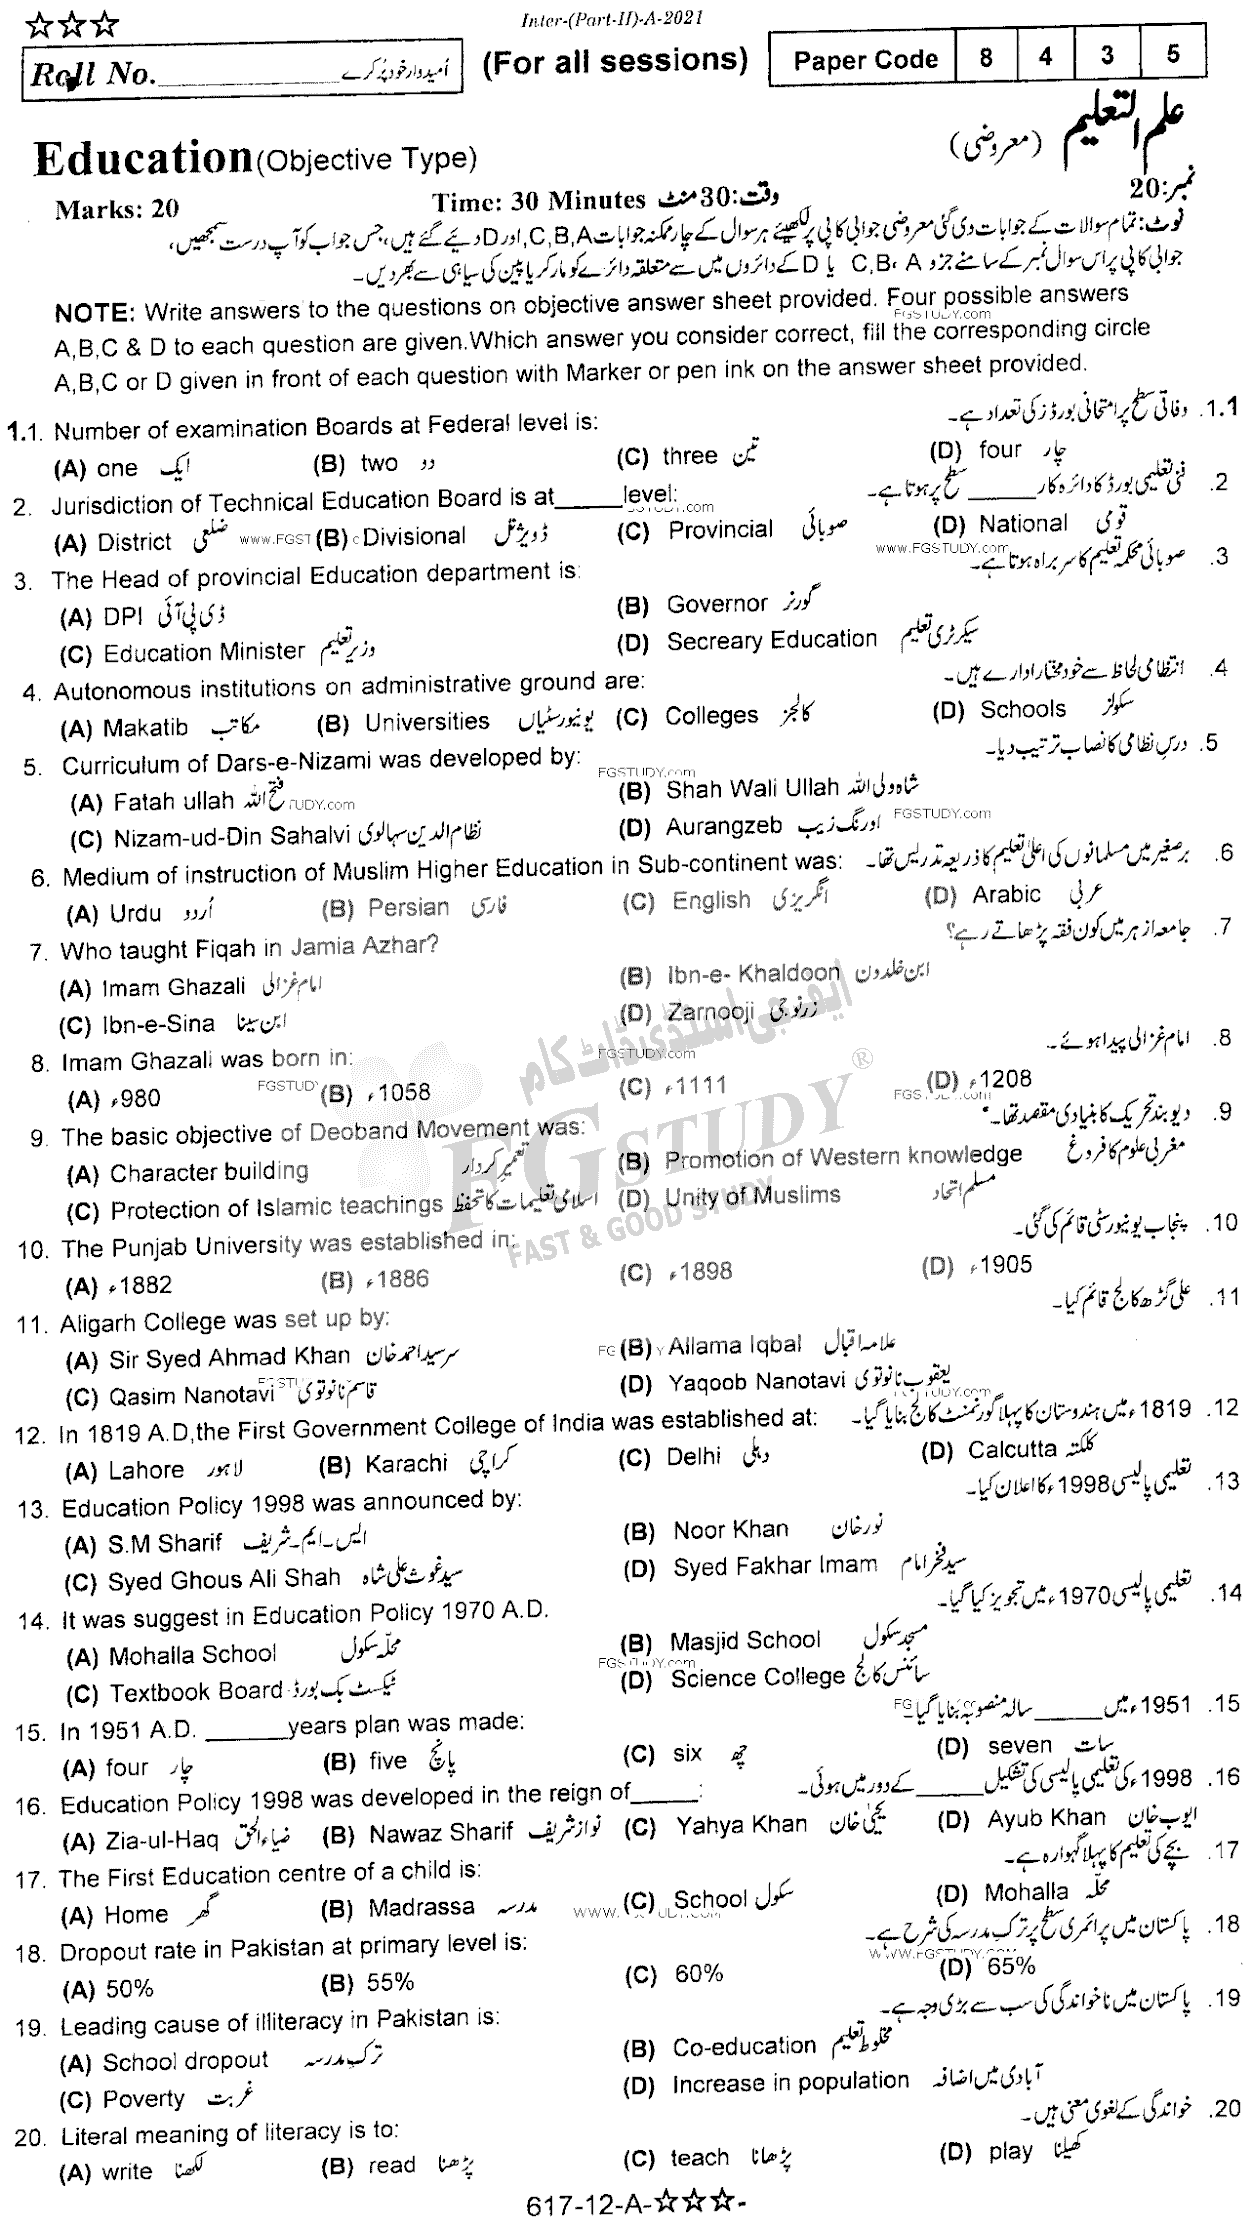 ☆☆☆ Inter-(Part-II)-A-2021
Roll No.____________ اُمیدوار خود پُر کرے (For all sessions) Paper Code 8 4 3 5
Education(Objective Type) علم التعلیم (معروضی)
Marks: 20 Time: 30 Minutes وقت:30 منٹ نمبر:20
نوٹ: تمام سوالات کے جوابات دی گئی معروضی جوابی کاپی پر لکھیئے ہر سوال کے چار ممکنہ جوابات C,B,A, اور D دیئے گئے ہیں، جس جواب کو آپ درست سمجھیں،
جوابی کاپی پر اس سوال نمبر کے سامنے جز و C,B، A یا D کے دائروں میں سے متعلقہ دائرے کو مارکر یا پین کی سیاہی سے بھر دیں۔
NOTE: Write answers to the questions on objective answer sheet provided. Four possible answers
A,B,C & D to each question are given.Which answer you consider correct, fill the corresponding circle
A,B,C or D given in front of each question with Marker or pen ink on the answer sheet provided.
1.1. Number of examination Boards at Federal level is: 1.1. وفاقی سطح پر امتحانی بورڈز کی تعداد ہے۔
(A) one ایک (B) two دو (C) three تین (D) four چار
2. Jurisdiction of Technical Education Board is at_____level: 2. فنی تعلیمی بورڈ کا دائرہ کار _____ سطح پر ہوتا ہے۔
(A) District ضلعی (B) Divisional ڈویژنل (C) Provincial صوبائی (D) National قومی
3. The Head of provincial Education department is: 3. صوبائی محکمہ تعلیم کا سربراہ ہوتا ہے۔
(A) DPI ڈی پی آئی (B) Governor گورنر
(C) Education Minister وزیر تعلیم (D) Secreary Education سیکرٹری تعلیم
4. Autonomous institutions on administrative ground are: 4. انتظامی لحاظ سے خود مختار ادارے ہیں۔
(A) Makatib مکاتب (B) Universities یونیورسٹیاں (C) Colleges کالجز (D) Schools سکولز
5. Curriculum of Dars-e-Nizami was developed by: 5. درس نظامی کا نصاب ترتیب دیا۔
(A) Fatah ullah فتح اللہ (B) Shah Wali Ullah شاہ ولی اللہ
(C) Nizam-ud-Din Sahalvi نظام الدین سہالوی (D) Aurangzeb اورنگ زیب
6. Medium of instruction of Muslim Higher Education in Sub-continent was: 6. برصغیر میں مسلمانوں کی اعلیٰ تعلیم کا ذریعہ تدریس تھا۔
(A) Urdu اُردو (B) Persian فارسی (C) English انگریزی (D) Arabic عربی
7. Who taught Fiqah in Jamia Azhar? 7. جامعہ ازہر میں کون فقہ پڑھاتے رہے؟
(A) Imam Ghazali امام غزالی (B) Ibn-e- Khaldoon ابن خلدون
(C) Ibn-e-Sina ابن سینا (D) Zarnooji زرنوجی
8. Imam Ghazali was born in: 8. امام غزالی پیدا ہوئے۔
(A) ء980 (B) ء1058 (C) ء1111 (D) ء1208
9. The basic objective of Deoband Movement was: 9. دیوبند تحریک کا بنیادی مقصد تھا۔
(A) Character building تعمیر کردار (B) Promotion of Western knowledge مغربی علوم کا فروغ
(C) Protection of Islamic teachings اسلامی تعلیمات کا تحفظ (D) Unity of Muslims مسلم اتحاد
10. The Punjab University was established in: 10. پنجاب یونیورسٹی قائم کی گئی۔
(A) ء1882 (B) ء1886 (C) ء1898 (D) ء1905
11. Aligarh College was set up by: 11. علی گڑھ کالج قائم کیا۔
(A) Sir Syed Ahmad Khan سر سید احمد خان (B) Allama Iqbal علامہ اقبال
(C) Qasim Nanotavi قاسم نانوتوی (D) Yaqoob Nanotavi یعقوب نانوتوی
12. In 1819 A.D,the First Government College of India was established at: 12. 1819ء میں ہندوستان کا پہلا گورنمنٹ کالج بنایا گیا۔
(A) Lahore لاہور (B) Karachi کراچی (C) Delhi دہلی (D) Calcutta کلکتہ
13. Education Policy 1998 was announced by: 13. تعلیمی پالیسی 1998ء کا اعلان کیا۔
(A) S.M Sharif ایس۔ایم۔شریف (B) Noor Khan نور خان
(C) Syed Ghous Ali Shah سید غوث علی شاہ (D) Syed Fakhar Imam سید فخر امام
14. It was suggest in Education Policy 1970 A.D. 14. تعلیمی پالیسی 1970ء میں تجویز کیا گیا۔
(A) Mohalla School محلّہ سکول (B) Masjid School مسجد سکول
(C) Textbook Board ٹیکسٹ بک بورڈ (D) Science College سائنس کالج
15. In 1951 A.D. ______years plan was made: 15. 1951ء میں _____ سالہ منصوبہ بنایا گیا۔
(A) four چار (B) five پانچ (C) six چھ (D) seven سات
16. Education Policy 1998 was developed in the reign of_____: 16. 1998ء کی تعلیمی پالیسی کی تشکیل _____ کے دور میں ہوئی۔
(A) Zia-ul-Haq ضیاء الحق (B) Nawaz Sharif نواز شریف (C) Yahya Khan یحییٰ خان (D) Ayub Khan ایوب خان
17. The First Education centre of a child is: 17. بچے کی تعلیم کا پہلا گہوارہ ہے۔
(A) Home گھر (B) Madrassa مدرسہ (C) School سکول (D) Mohalla محلّہ
18. Dropout rate in Pakistan at primary level is: 18. پاکستان میں پرائمری سطح پر ترک مدرسہ کی شرح ہے۔
(A) 50% (B) 55% (C) 60% (D) 65%
19. Leading cause of illiteracy in Pakistan is: 19. پاکستان میں ناخواندگی کی سب سے بڑی وجہ ہے۔
(A) School dropout ترک مدرسہ (B) Co-education مخلوط تعلیم
(C) Poverty غربت (D) Increase in population آبادی میں اضافہ
20. Literal meaning of literacy is to: 20. خواندگی کے لغوی معنی ہیں۔
(A) write لکھنا (B) read پڑھنا (C) teach پڑھانا (D) play کھیلنا
617-12-A-☆☆☆-
ایف جی اسٹڈی ڈاٹ کام
FG STUDY ®
FAST & GOOD STUDY